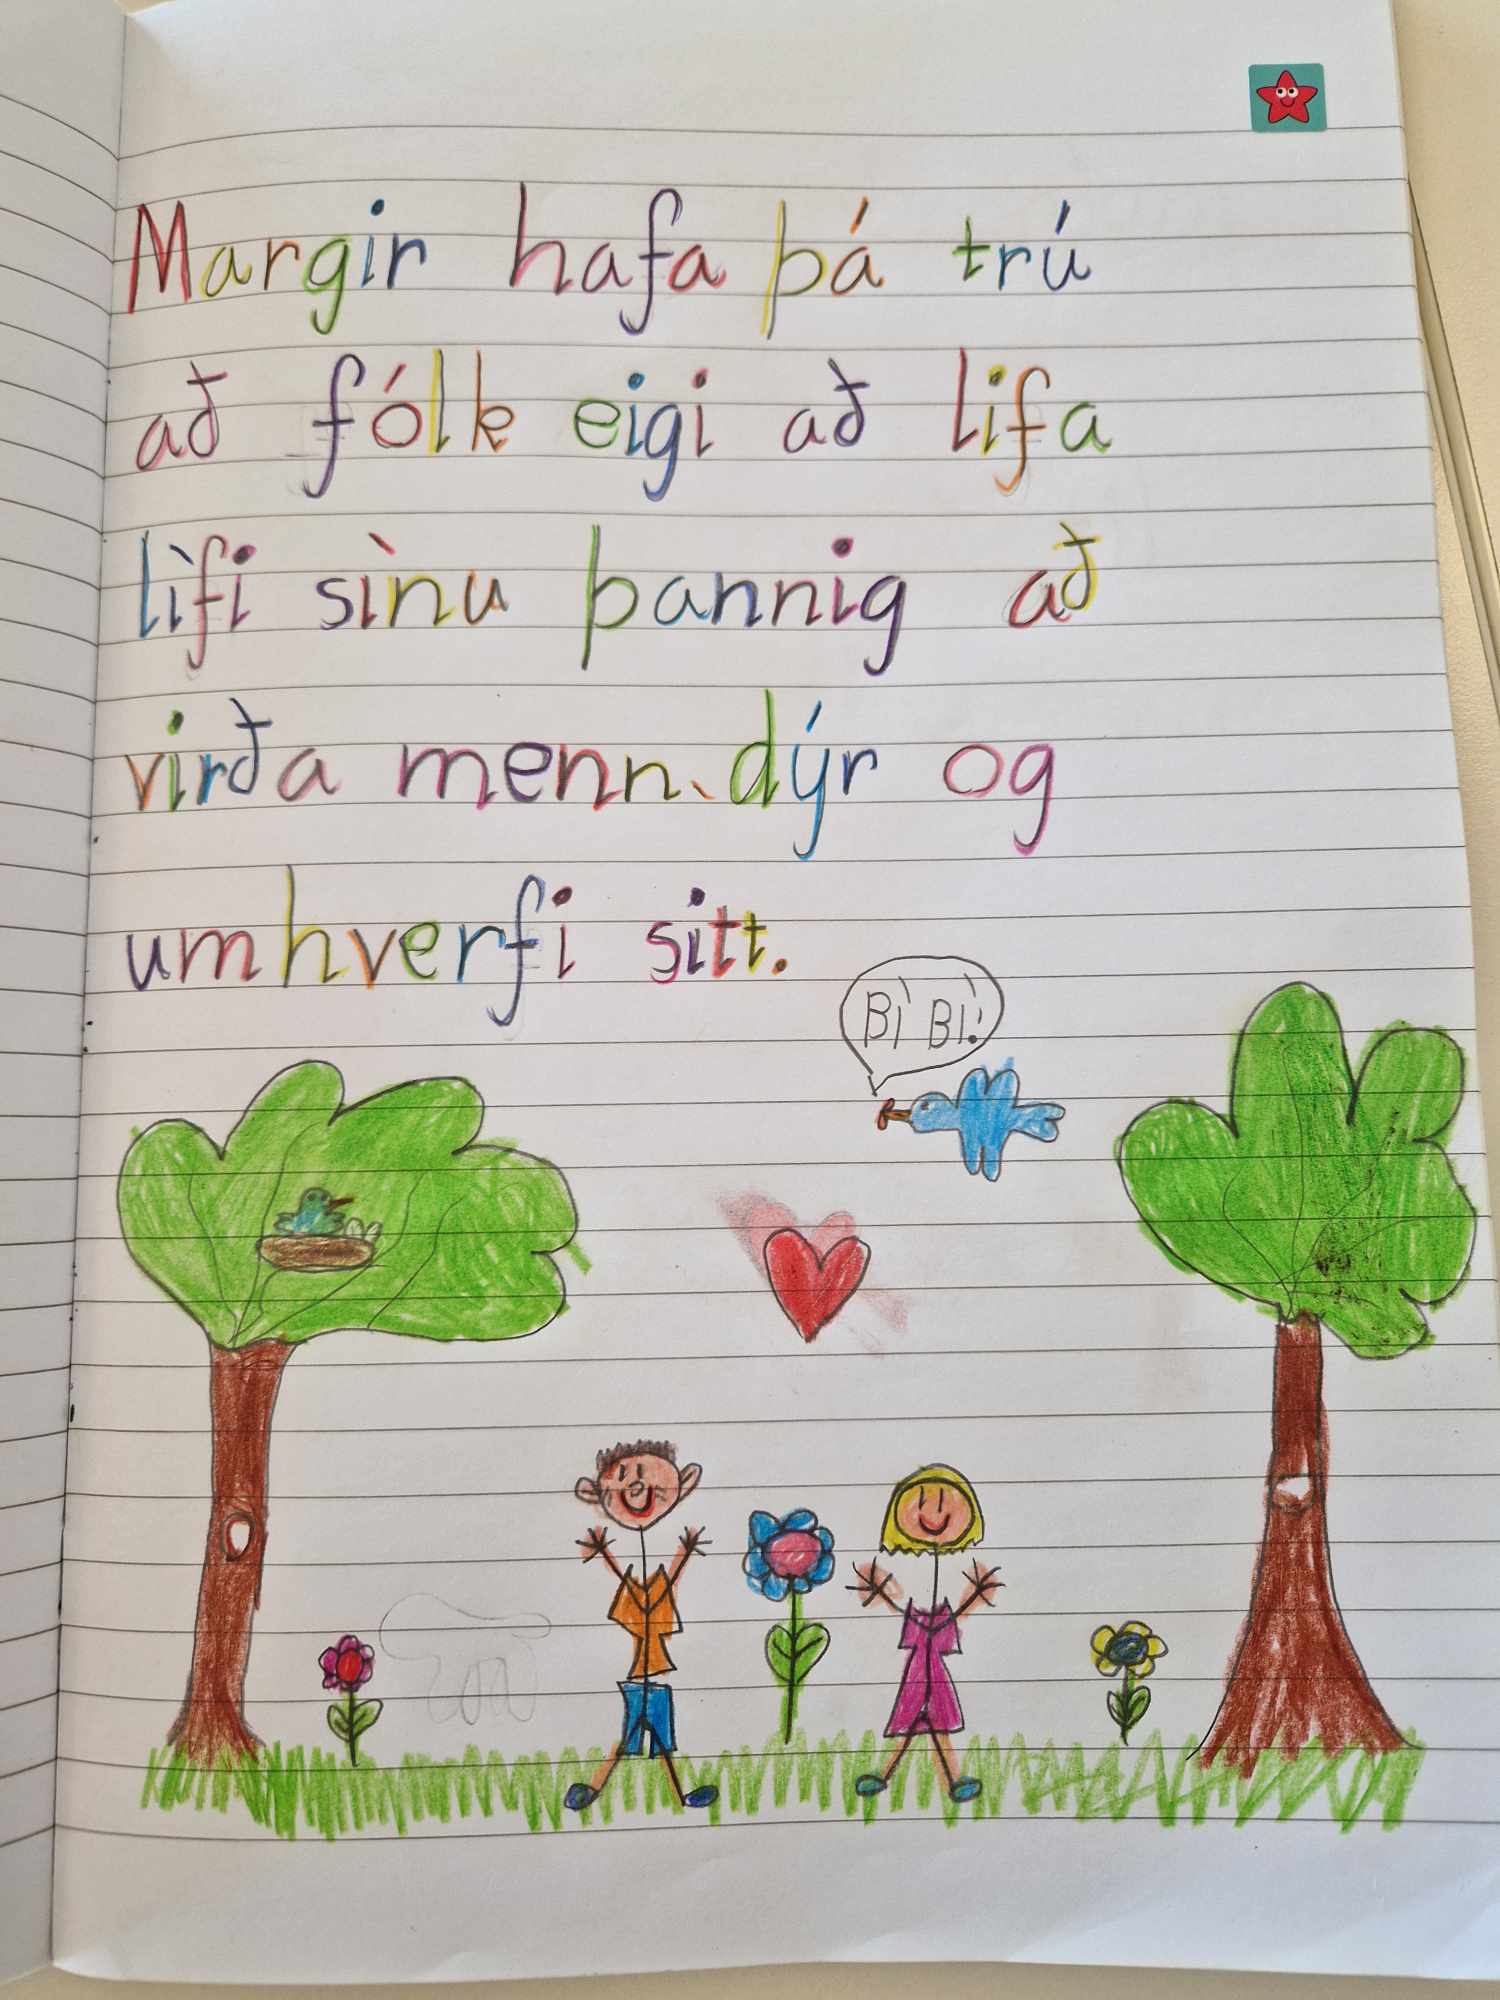 Margir hafa þá trú
að fólk eigi að lifa
lìfi sìnu þannig að
virða menn, dýr og
umhverfi sitt.
Bì Bì!